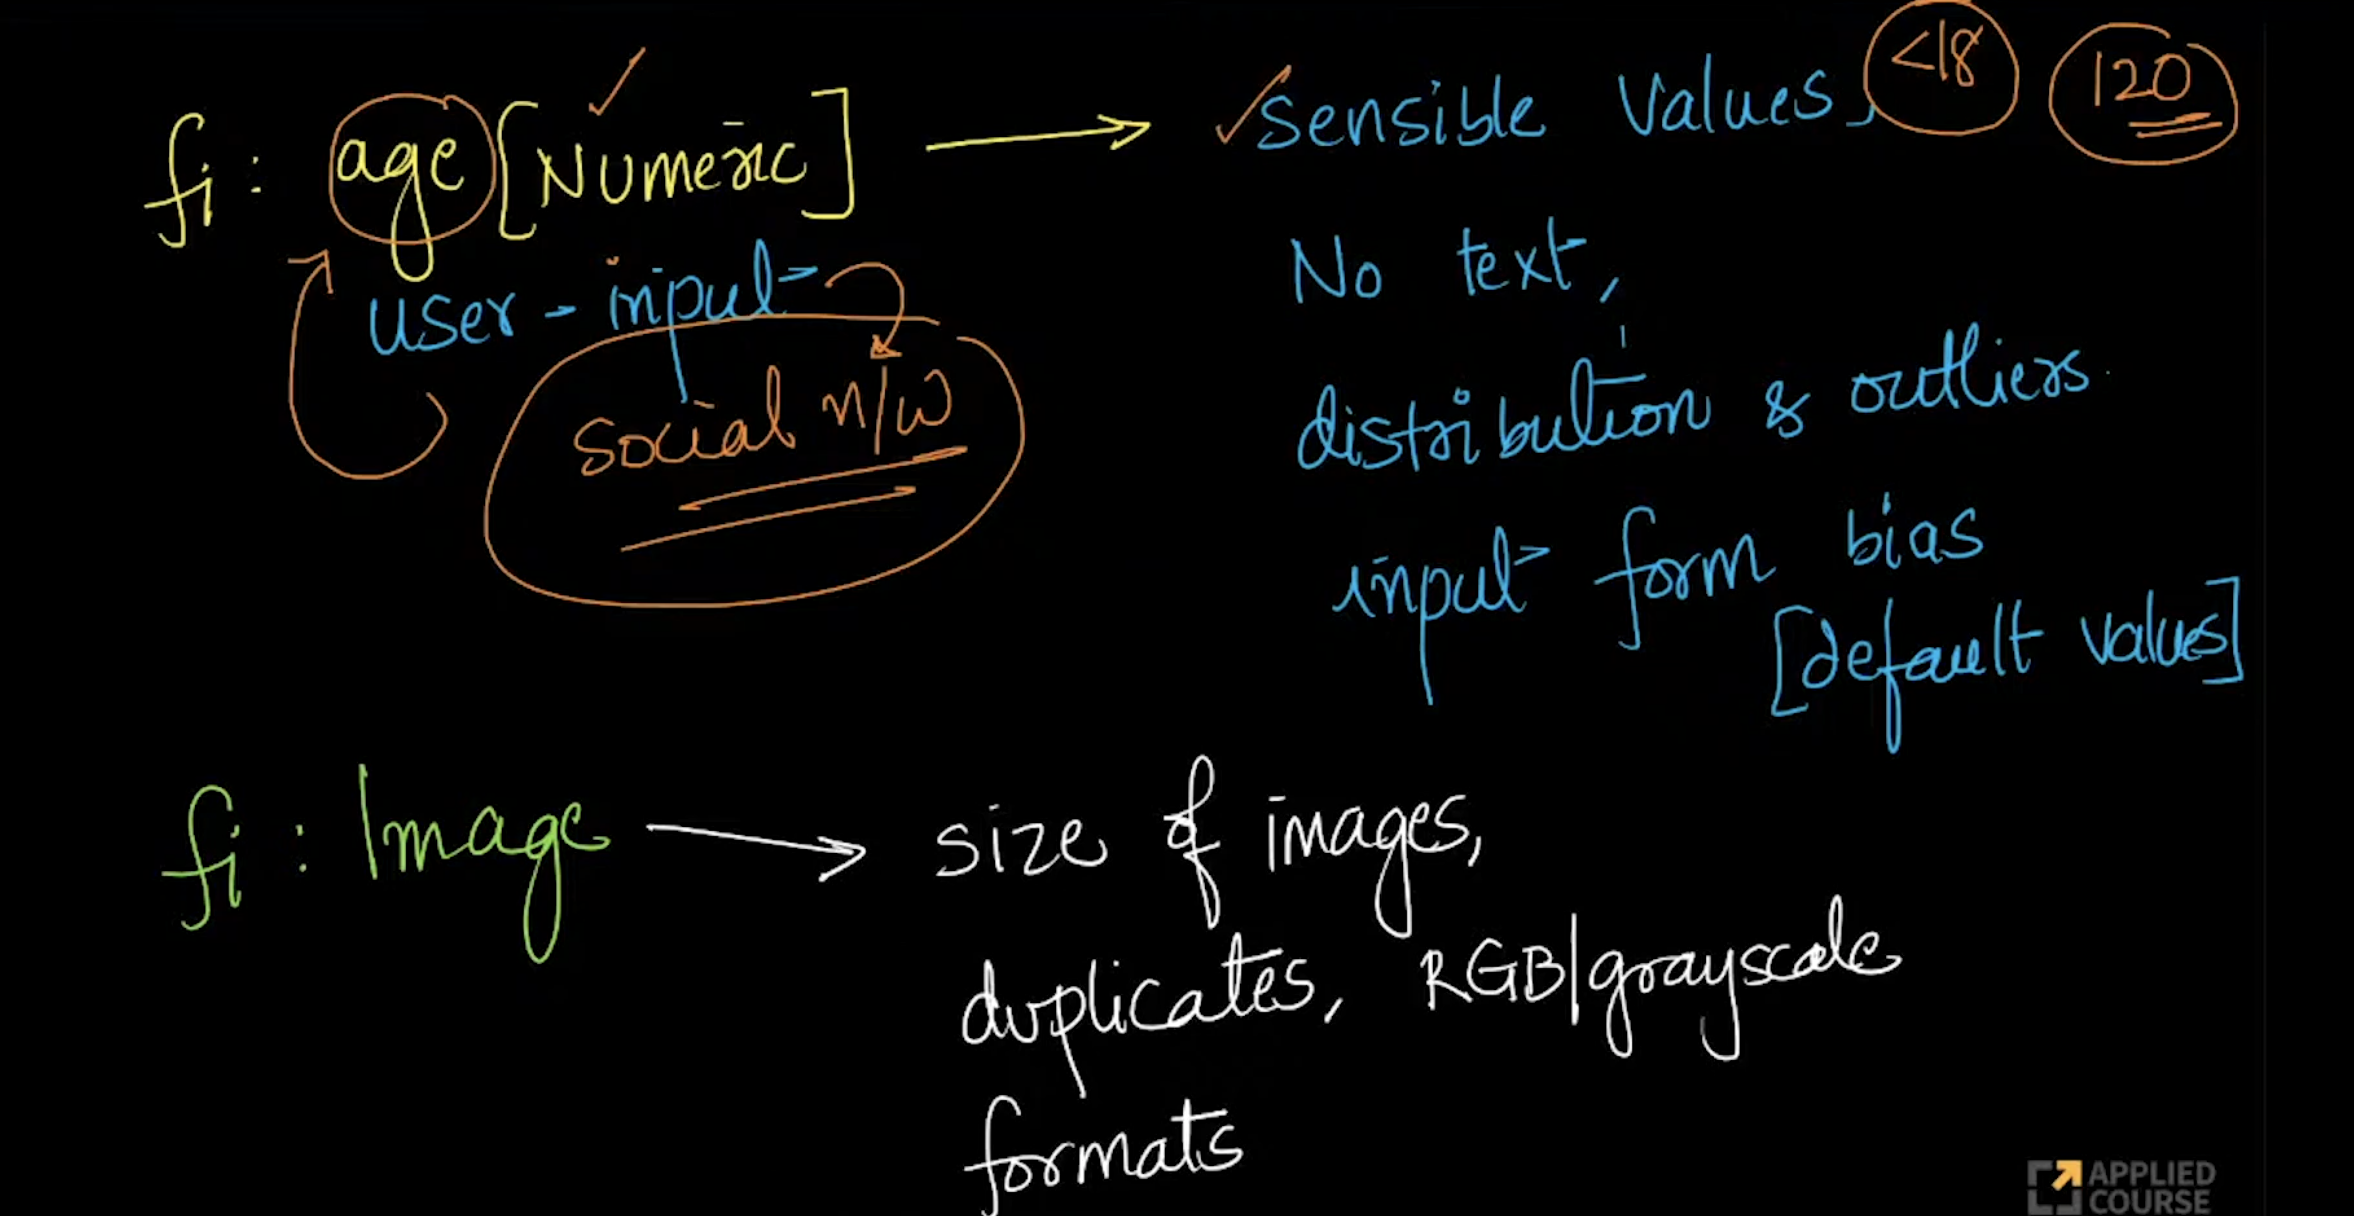 fi : age [Numeric] → sensible values, <18 120
user-input
social n/w
No text,
distribution & outliers.
input form bias
[default values]
fi : Image → size of images,
duplicates, RGB/grayscale
formats
APPLIED
COURSE